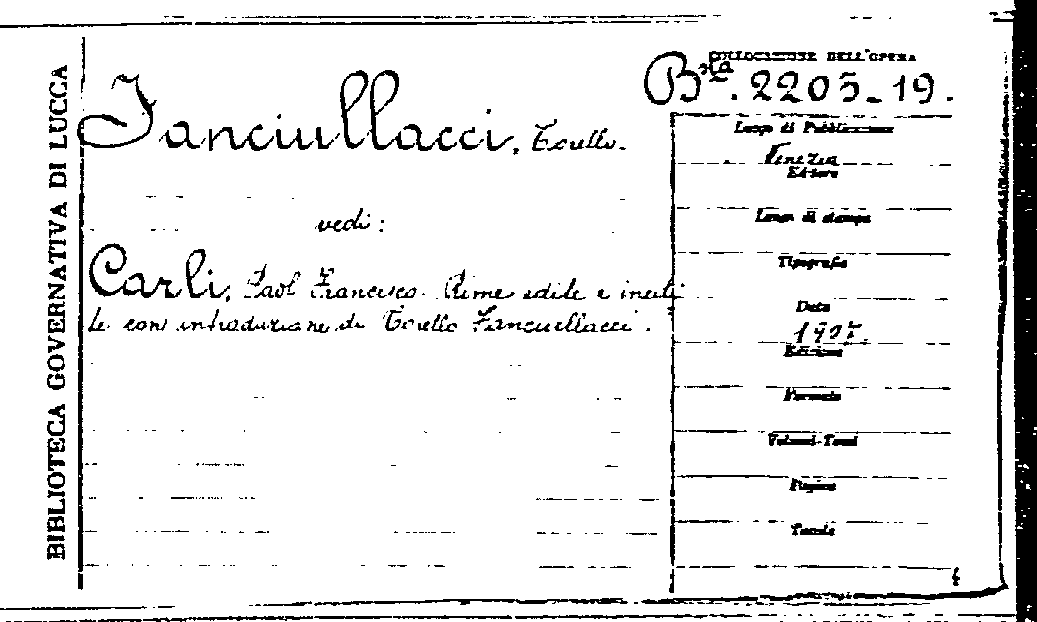 BIBLIOTECA GOVERNATIVA DI LUCCA
COLLOCAZIONE DELL'OPERA
Bta. 2205-19.
Fanciullacci, Torello.
vedi:
Carli, Paol Francesco. Rime edite e inedi
te con introduzione di Torello Fanciullacci.
Luogo di Pubblicazione
Venezia
Editore
Luogo di stampa
Tipografia
Data
Edizione
Formato
Volumi-Tomi
Pagine
Tavole